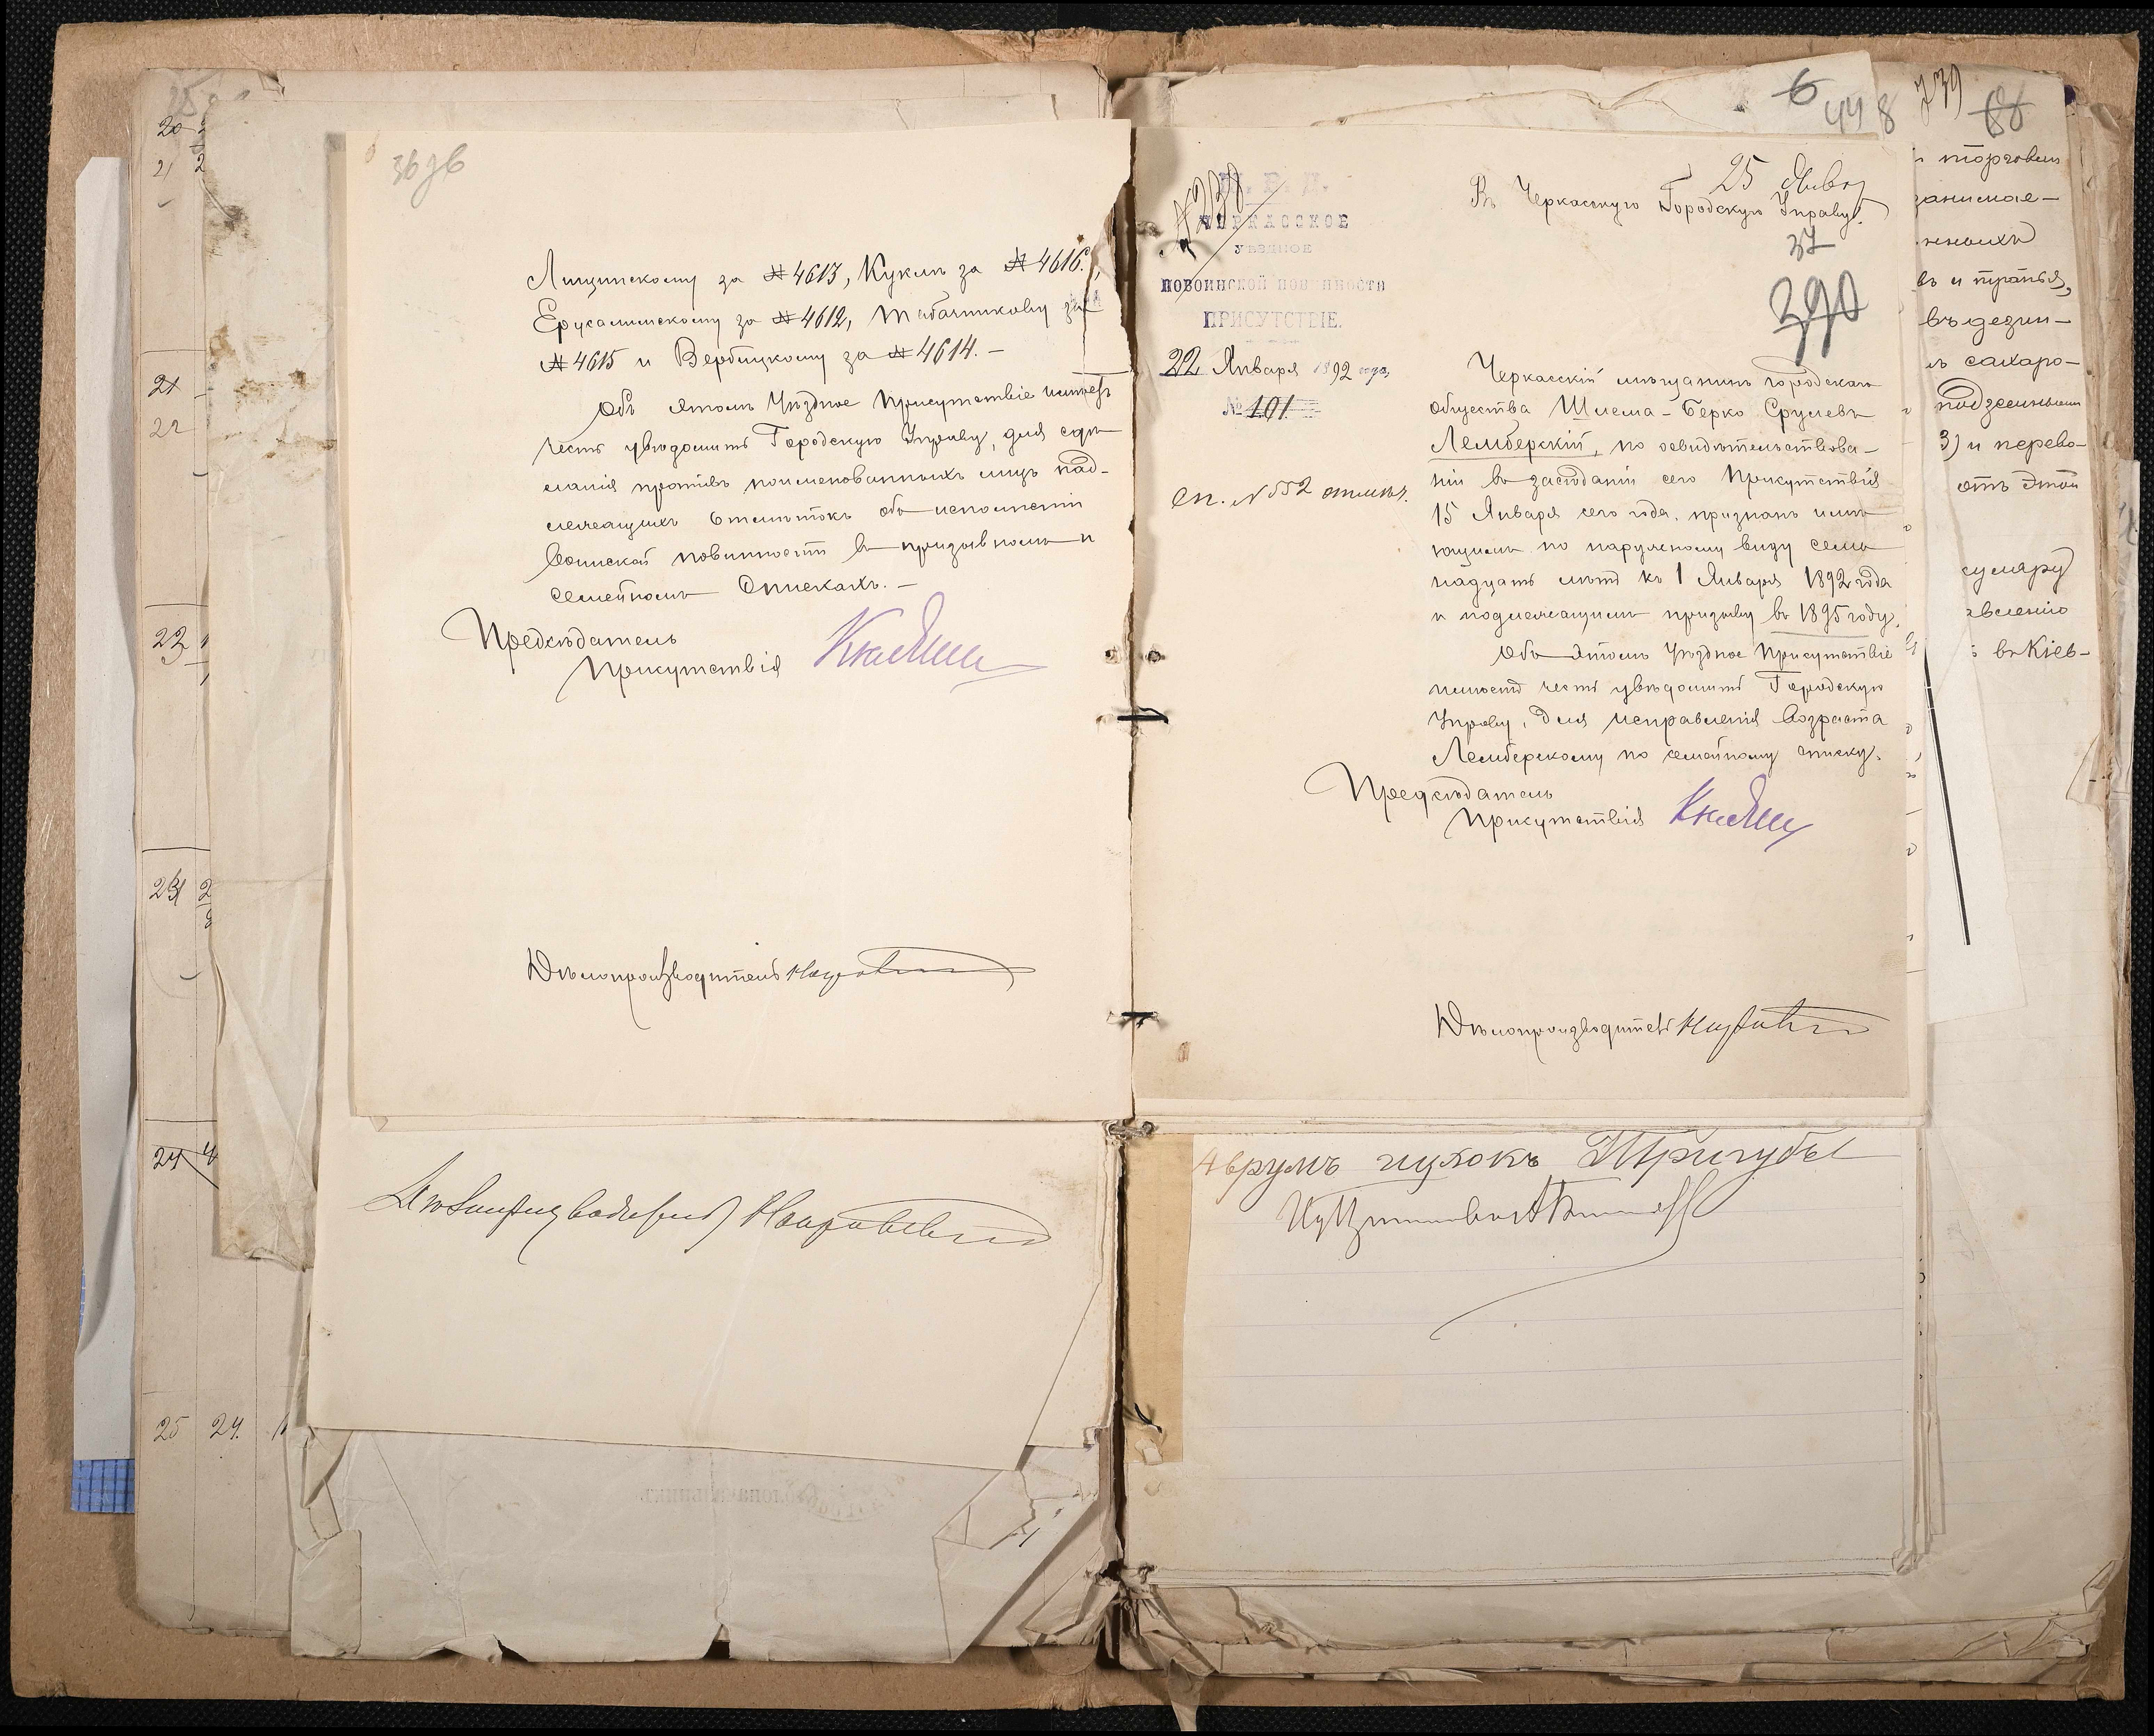 20
21
21
22
23
24
25 24.
Лищинскому за № 4613, Куклѣ за № 4616,
Ерусалимскому за № 4612, Табачникову за
№ 4615 и Вербицкому за № 4614.—
Объ этомъ Уѣздное Присутствіе имѣетъ
честь увѣдомить Городскую Управу, для сдѣ-
ланія противъ поименованныхъ лицъ над-
лежащихъ отмѣтокъ объ исполненіи
воинской повинности въ призывномъ и
семейномъ спискахъ.—
Предсѣдатель
Присутствія
Дѣлопроизводитель
Дѣлопроизводитель
6
448
739
68
№ 238
М. В. Д.
ЧЕРКАССКОЕ
УѢЗДНОЕ
ПО ВОИНСКОЙ ПОВИННОСТИ
ПРИСУТСТВІЕ.
22 Января 1892 года,
№ 101
сп. № 552 отмѣч.
25 Янвр
Въ Черкасскую Городскую Управу.
37
390
Черкасскій мѣщанинъ городскаго
общества Шлема-Берко Срулевъ
Лемберскій, по освидѣтельствова-
ніи въ засѣданіи сего Присутствія
15 Января сего года, признанъ имѣ-
ющимъ по наружному виду семь
надцать лѣтъ къ 1 Января 1892 года
и подлежащимъ призыву въ 1895 году.
Объ этомъ Уѣздное Присутствіе
имѣетъ честь увѣдомить Городскую
Управу, для исправленія возраста
Лемберскому по семейному списку.
Предсѣдатель
Присутствія
Дѣлопроизводитель
Аврумъ Ицкокъ Тригубы
торговли
занимае-
въ и тратья,
въ дезин-
сахаро-
3) и перево-
отъ этой
авленію
въ Кіев-